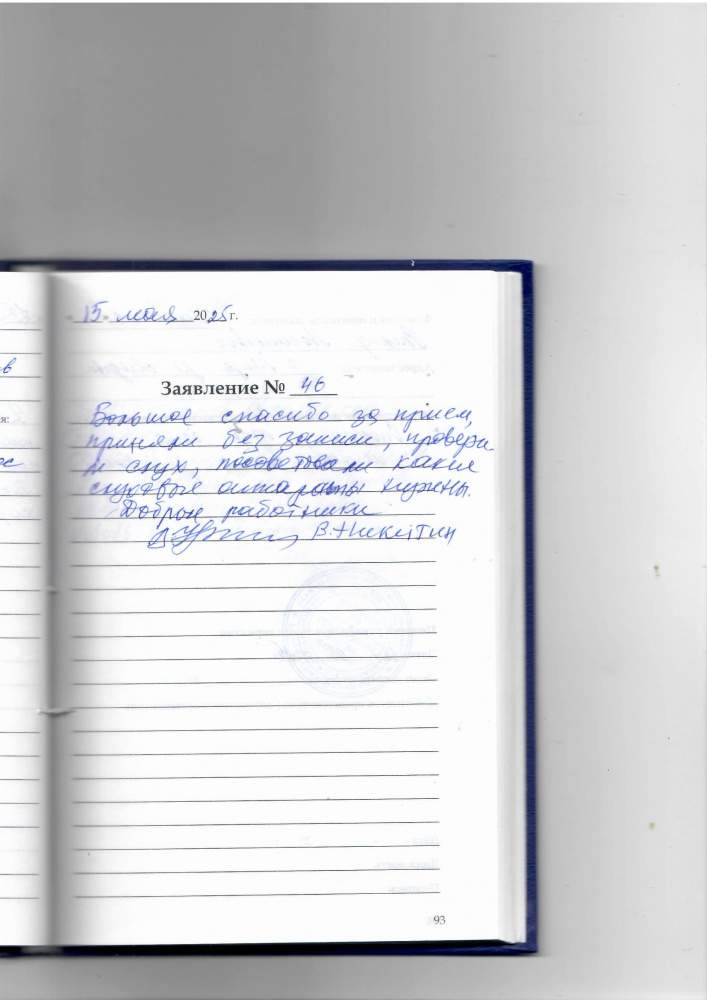 15 мая 2025 г.
Заявление № 46
Большое спасибо за прием,
приняли без записи, провери
ли слух, посоветовали какие
слуховые аппараты нужны.
Доброй работники
В. Никитин
93